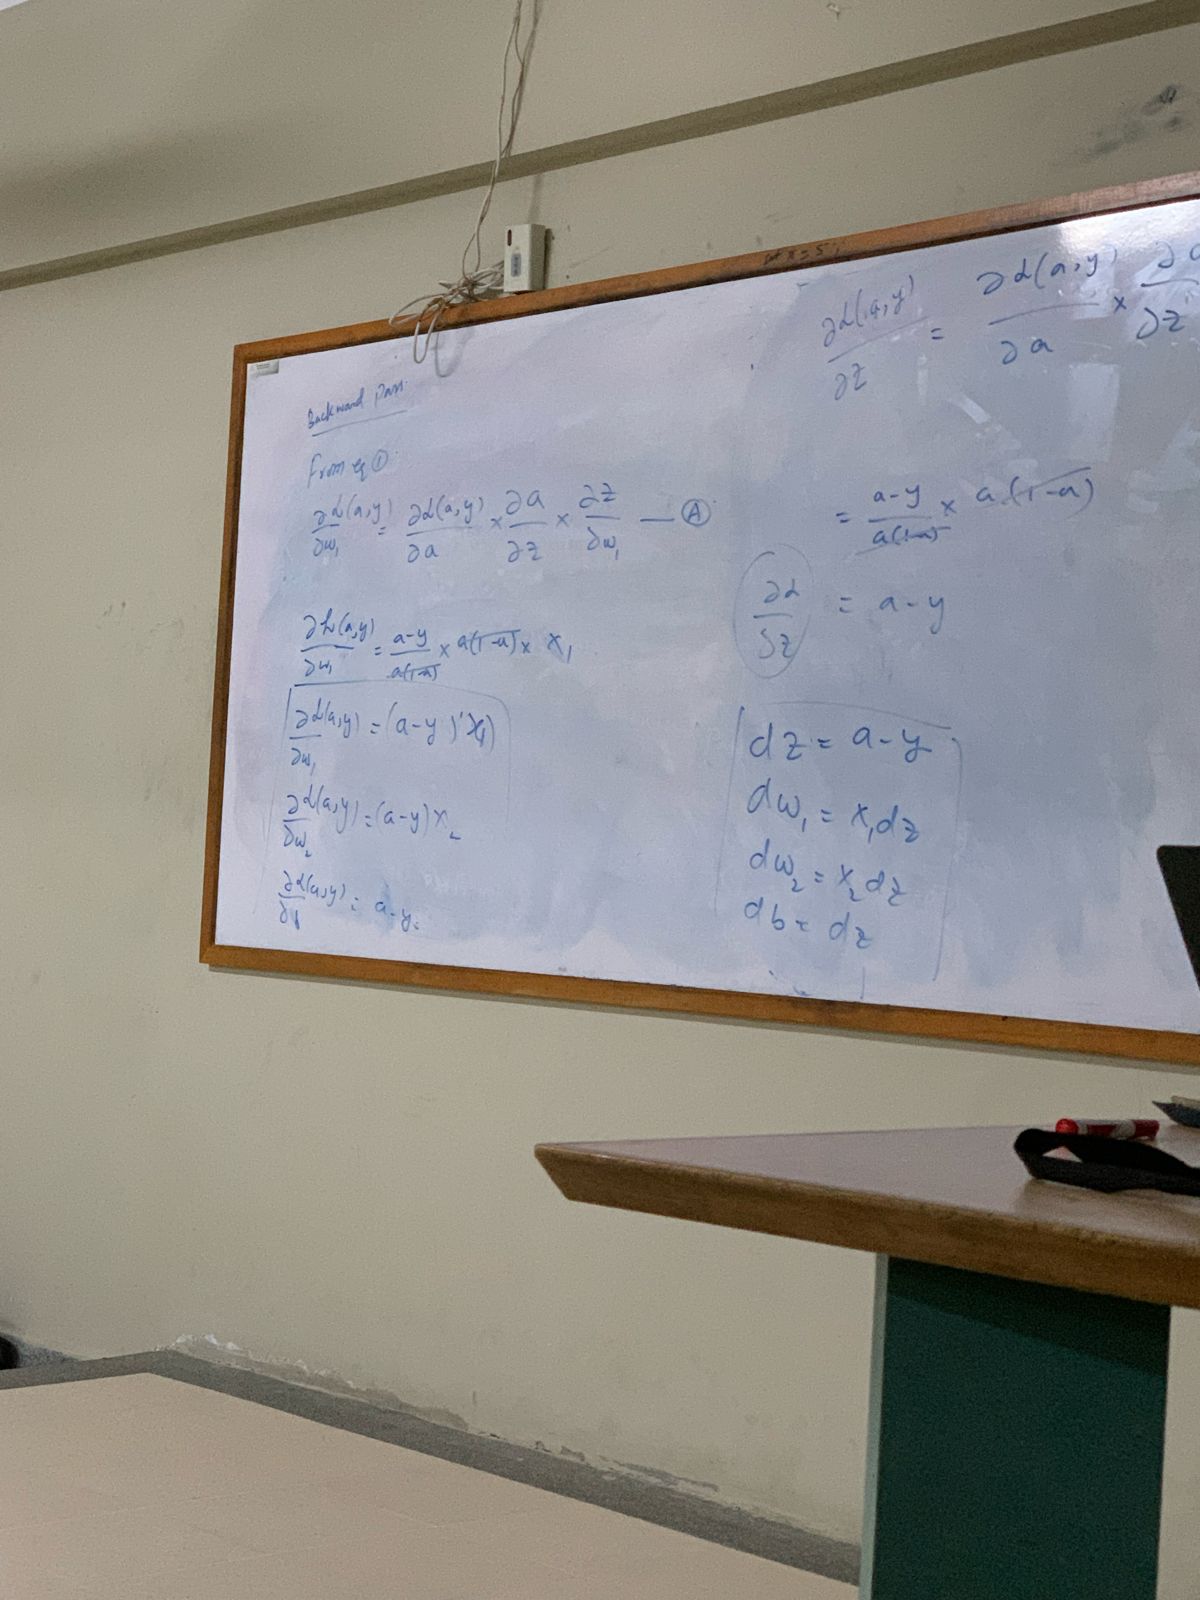 Backward Pass
From eq ①
∂L(a,y)/∂w₁ = ∂L(a,y)/∂a × ∂a/∂z × ∂z/∂w₁ — Ⓐ
∂L(a,y)/∂w₁ = a-y/a(1-a) × a(1-a) × x₁
∂L(a,y)/∂w₁ = (a-y) x₁
∂L(a,y)/∂w₂ = (a-y)x₂
∂L(a,y)/∂b = a-y
∂L(a,y)/∂z = ∂L(a,y)/∂a × ∂a/∂z
= a-y/a(1-a) × a(1-a)
∂L/∂z = a-y
dz = a-y
dw₁ = x₁dz
dw₂ = x₂dz
db = dz